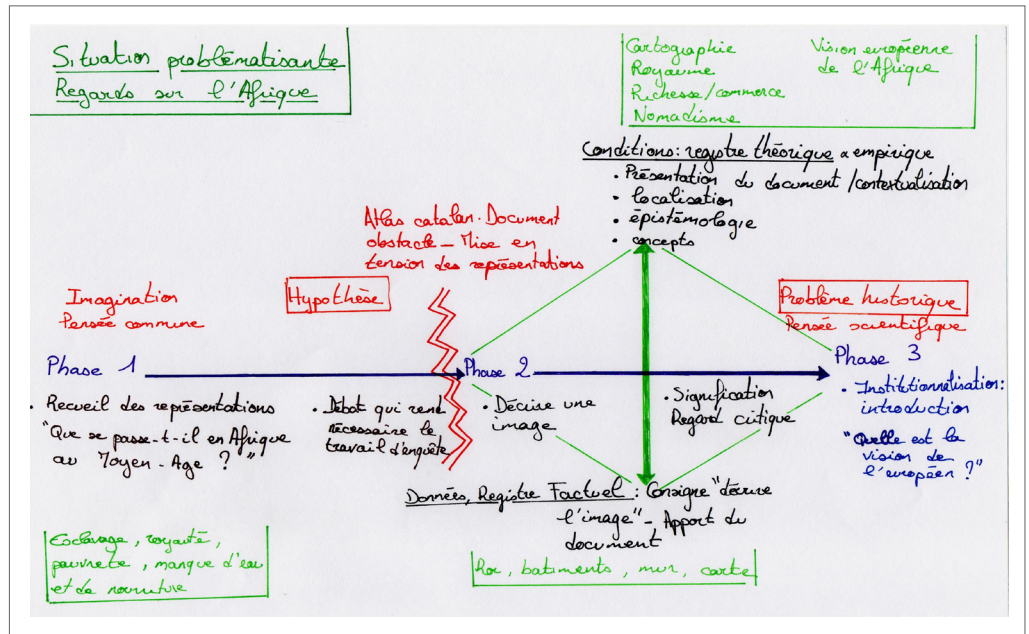 Situation problématisante
Regards sur l'Afrique
Cartographie
Royaume
Richesse/commerce
Nomadisme
Vision européenne
de l'Afrique
Conditions: registre théorique & empirique
• Présentation du document/contextualisation
• localisation
• épistémologie
• concepts
Atlas catalan. Document
obstacle - Mise en
tension des représentations
Imagination
Pensée commune
Hypothèse
Problème historique
Pensée scientifique
Phase 1
Phase 2
Phase 3
• Recueil des représentations
"Que se passe-t-il en Afrique
au Moyen-Age ?"
• Débat qui rend
nécessaire le
travail d'enquête
• Décrire une
image
• Signification
Regard critique
• Institutionnalisation:
introduction
"Quelle est la
vision de
l'européen ?"
Données, Registre Factuel : Consigne "décrire
l'image" - Apport du
document
Esclavage, royauté,
pauvreté, manque d'eau
et de nourriture
Roi, batiments, mur, carte